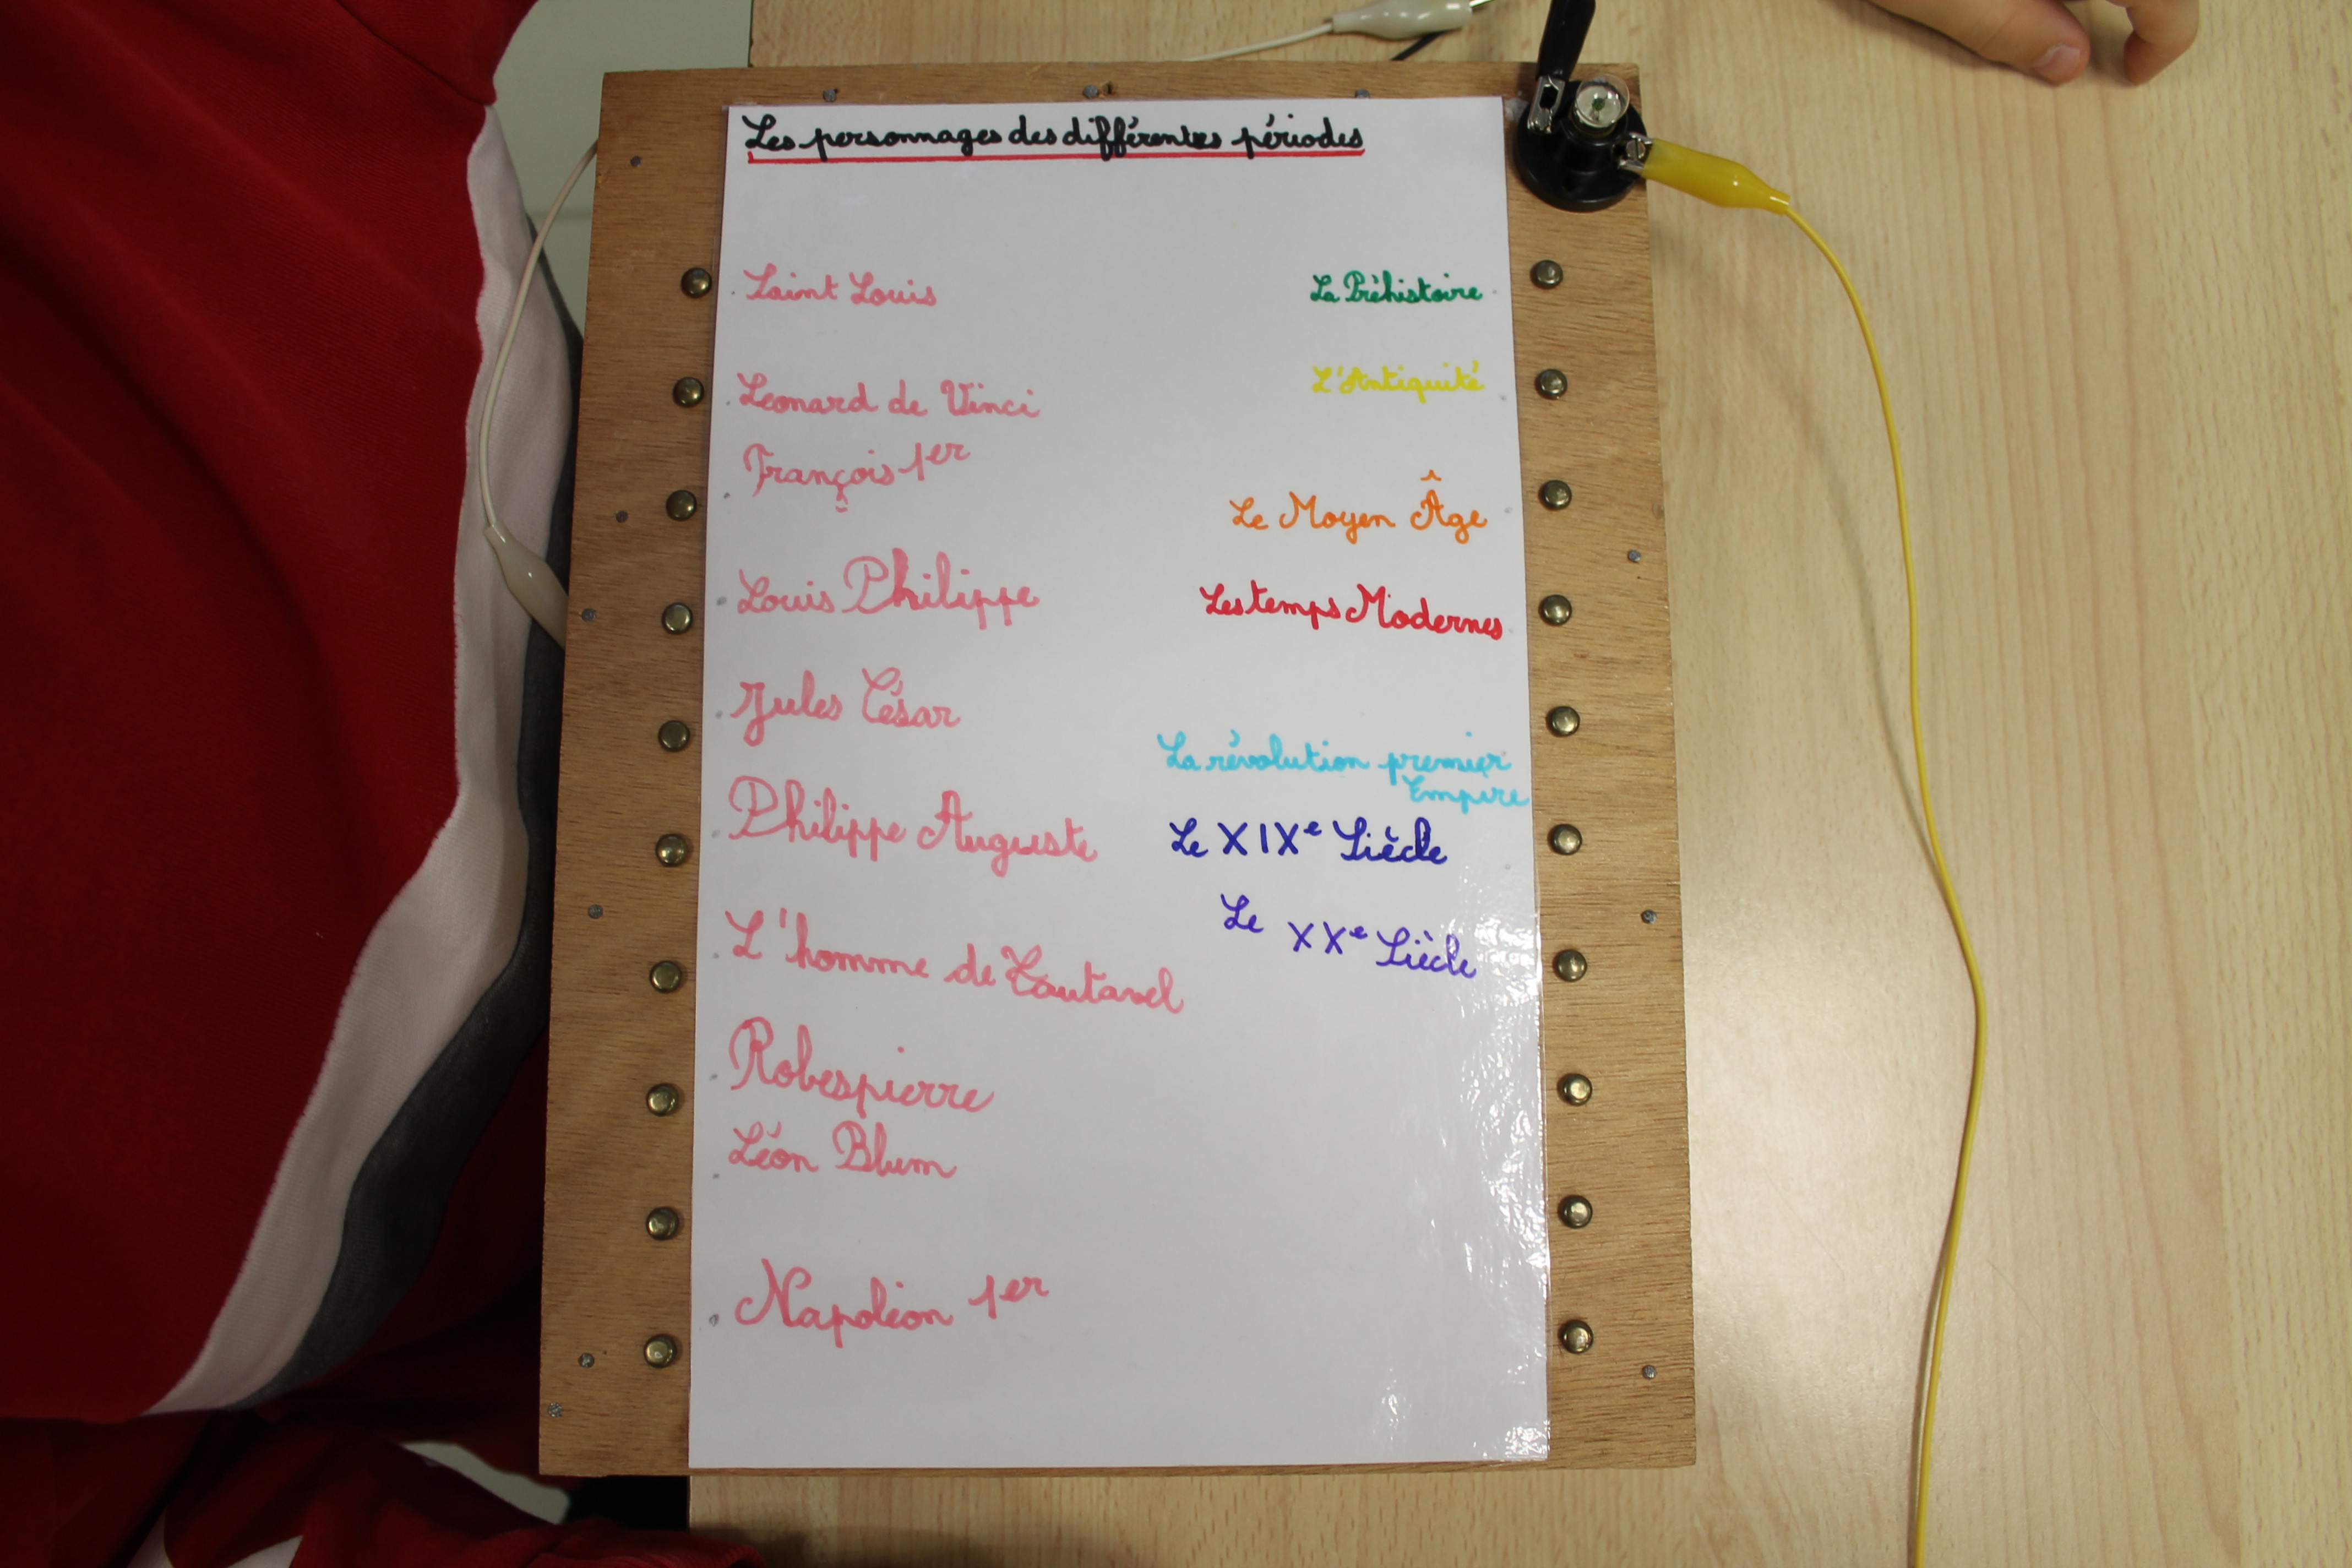 Les personnages des différentes périodes
Saint Louis
La Préhistoire
Léonard de Vinci
L'Antiquité
François 1er
Le Moyen Âge
Louis Philippe
Les temps Modernes
Jules César
La révolution premier
Empire
Philippe Auguste
Le XIXe Siècle
Le XXe Siècle
L'homme de Tautavel
Robespierre
Léon Blum
Napoléon 1er